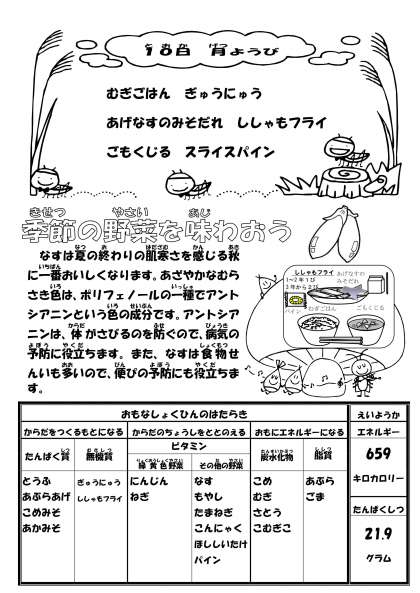 18日 月ようび
むぎごはん ぎゅうにゅう
あげなすのみそだれ ししゃもフライ
ごもくじる スライスパイン
季節の野菜を味わおう
なすは夏の終わりの肌寒さを感じる秋
に一番おいしくなります。あざやかなむら
さき色は、ポリフェノールの一種でアント
シアニンという色の成分です。アントシア
ニンは、体がさびるのを防ぐので、病気の
予防に役立ちます。また、なすは食物せ
んいも多いので、便びの予防にも役立ちま
す。
ししゃもフライ
1~2年1び
3年から2び
あげなすの
みそだれ
パイン
むぎごはん
ごもくじる
おもなしょくひんのはたらき
えいようか
からだをつくるもとになる からだのちょうしをととのえる おもにエネルギーになる
エネルギー
659
キロカロリー
たんぱくしつ
21.9
グラム
たんぱく質 無機質 ビタミン 炭水化物 脂質
緑黄色野菜 その他の野菜
とうふ ぎゅうにゅう にんじん なす こめ あぶら
あぶらあげ ししゃもフライ ねぎ もやし むぎ ごま
こめみそ たまねぎ さとう
あかみそ こんにゃく こむぎこ
ほししいたけ
パイン